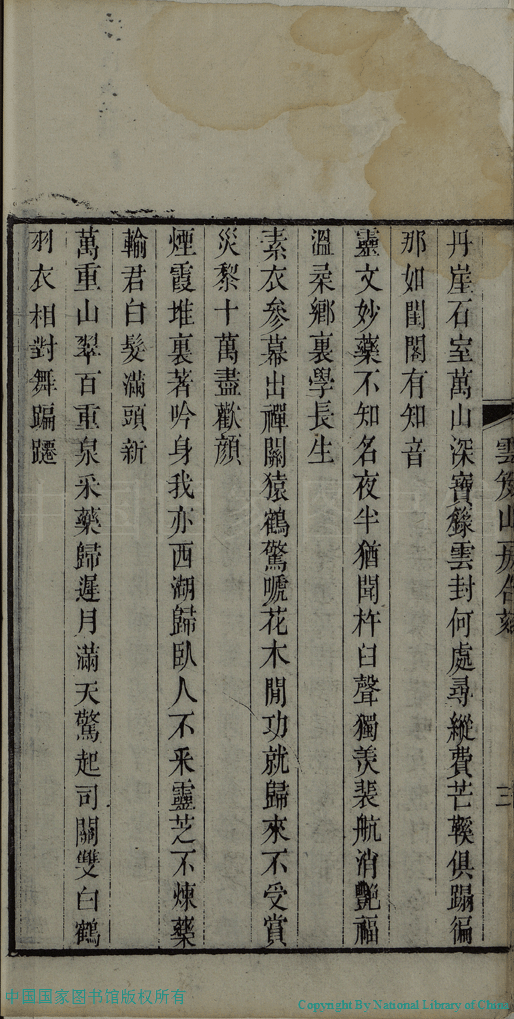 丹崖石室萬山深寶籙雲封何處尋縱費芒鞵俱蹋徧
那如閨閣有知音
靈文妙藥不知名夜半猶聞杵臼聲獨羨裴航消艷福
溫柔鄉裏學長生
素衣參幕出禪關猿鶴驚唬花木閒功就歸來不受賞
災黎十萬盡歡顔
煙霞堆裏著吟身我亦西湖歸臥人不采靈芝不煉藥
輸君白髮滿頭新
萬重山翠百重泉采藥歸遲月滿天驚起司關雙白鶴
羽衣相對舞蹁躚
三
中国国家图书馆版权所有
Copyright By National Library of China